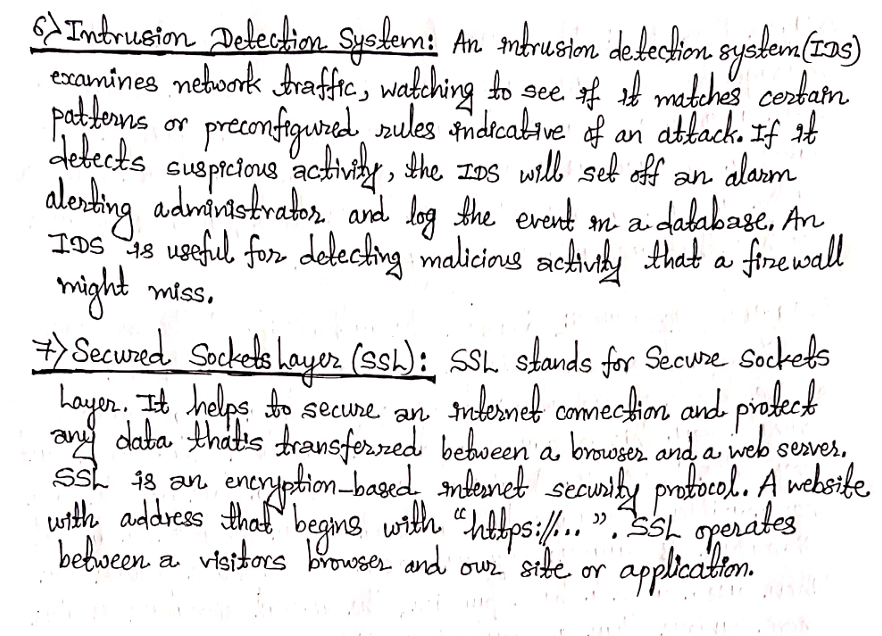 6) Intrusion Detection System: An intrusion detection system (IDS)
examines network traffic, watching to see if it matches certain
patterns or preconfigured rules indicative of an attack. If it
detects suspicious activity, the IDS will set off an alarm
alerting administrator and log the event in a database. An
IDS is useful for detecting malicious activity that a firewall
might miss.
7) Secured Sockets Layer (SSL): SSL stands for Secure Sockets
Layer. It helps to secure an internet connection and protect
any data that's transferred between a browser and a web server.
SSL is an encryption-based internet security protocol. A website
with address that begins with "https://... ". SSL operates
between a visitors browser and our site or application.